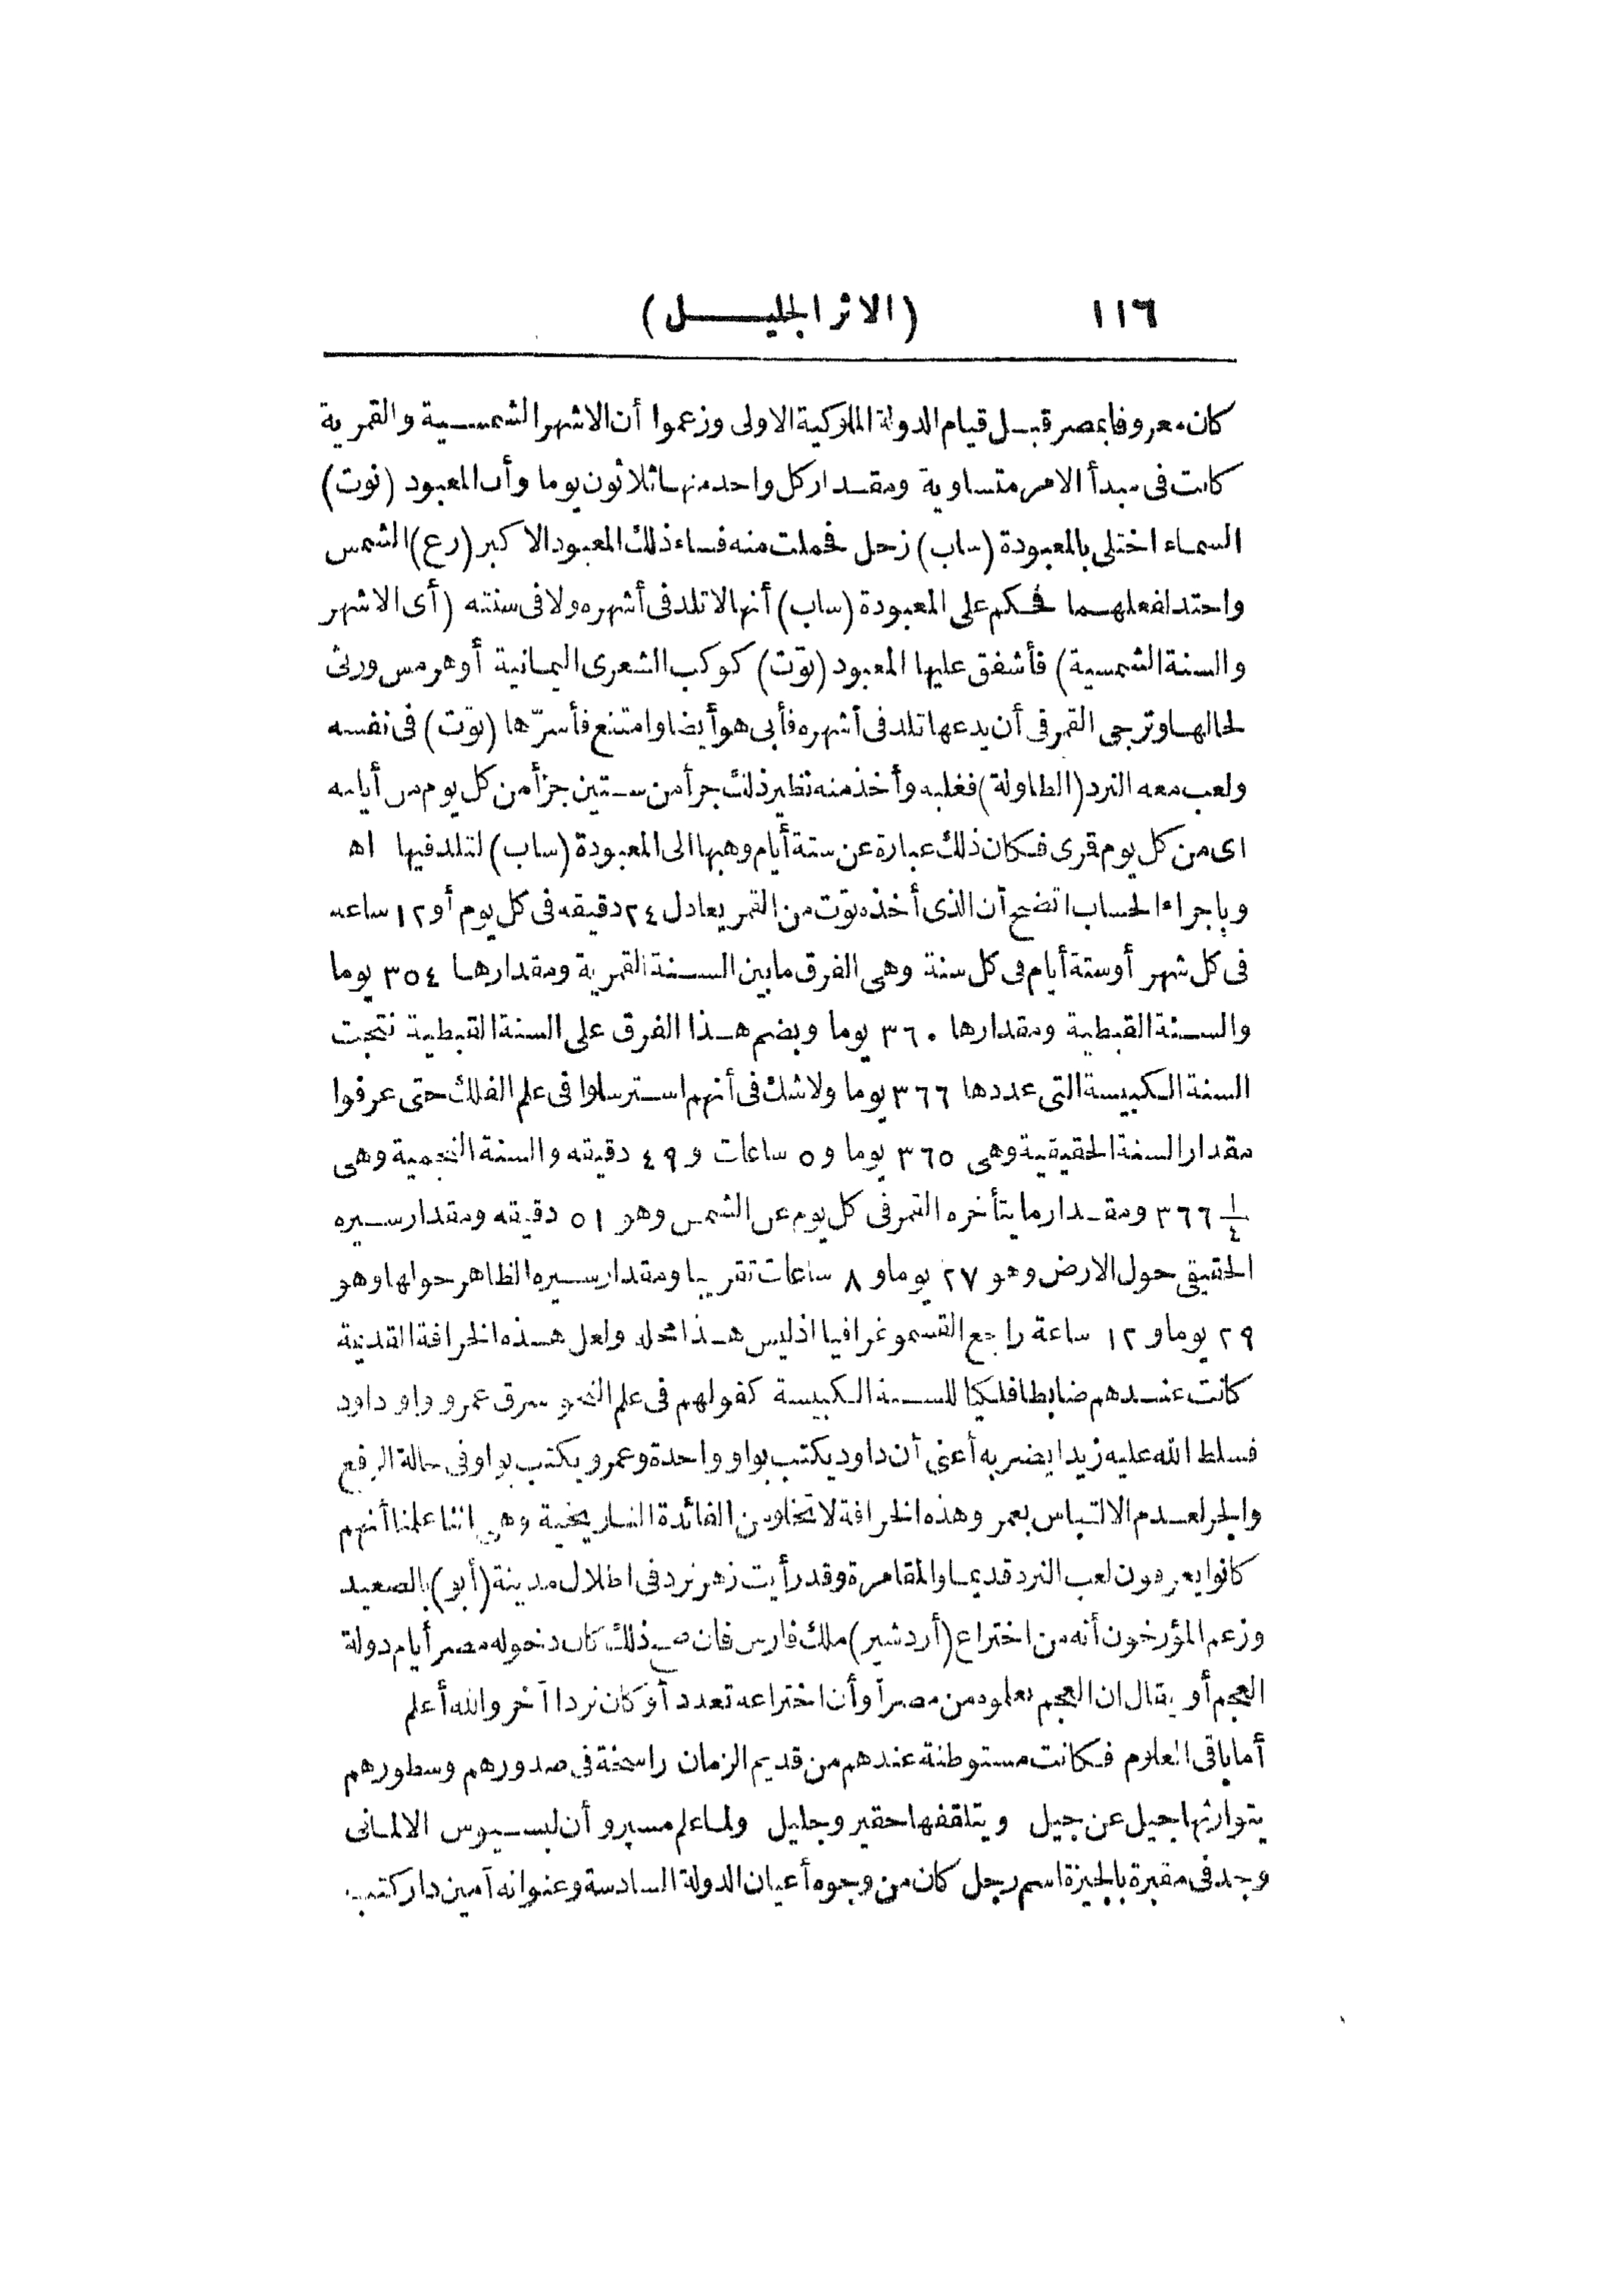 ١١٦ (الاثر الجليل)
كان معروفا بمصر قبل قيام الدولة الملوكية الاولى وزعموا أن الاشهر الشمسية والقمرية
كانت فى مبدأ الامر متساوية ومقدار كل واحد منها ثلاثون يوما وأن المعبود (نوت)
السماء اختلى بالمعبودة (ساب) زحل فحملت منه فساء ذلك المعبود الاكبر (رع) الشمس
واحتد لفعلهما فحكم على المعبودة (ساب) أنها لا تلد فى أشهره ولا فى سنته (أى الاشهر
والسنة الشمسية) فأشفق عليها المعبود (توت) كوكب الشعرى اليمانية أو هرمس ورثى
لحالها وترجى القمر فى أن يدعها تلد فى أشهره فأبى هو أيضا وامتنع فأسرّها (توت) فى نفسه
ولعب معه النرد (الطاولة) فغلبه وأخذ منه نظير ذلك جزأ من ستين جزأ من كل يوم من أيامه
اى من كل يوم قمرى فكان ذلك عبارة عن ستة أيام وهبها الى المعبودة (ساب) لتلد فيها اه
وباجراء الحساب اتضح أن الذى أخذه توت من القمر يعادل ٢٤ دقيقه فى كل يوم أو ١٢ ساعه
فى كل شهر أو ستة أيام فى كل سنة وهى الفرق ما بين السنة القمرية ومقدارها ٣٥٤ يوما
والسنة القبطية ومقدارها ٣٦٠ يوما وبضم هذا الفرق على السنة القبطية نتجت
السنة الكبيسة التى عددها ٣٦٦ يوما ولا شك فى أنهم استرسلوا فى علم الفلك حتى عرفوا
مقدار السنة الحقيقية وهى ٣٦٥ يوما و ٥ ساعات و ٤٩ دقيقه والسنة النجمية وهى
٣٦٦ ١/٤ ومقدار ما يتأخره القمر فى كل يوم عن الشمس وهو ٥١ دقيقه ومقدار سيره
الحقيقى حول الارض وهو ٢٧ يوما و ٨ ساعات تقريبا ومقدار سيره الظاهر حولها وهو
٢٩ يوما و ١٢ ساعة راجع القسموغرافيا اذ ليس هذا محله ولعل هذه الخرافة القديمة
كانت عندهم ضابطا فلكيا للسنة الكبيسة كقولهم فى علم النحو سرق عمرو واو داود
فسلط الله عليه زيدا يضربه أعنى أن داود يكتب بواو واحدة وعمرو يكتب بواو فى حالة الرفع
والجر لعدم الالتباس بعمر وهذه الخرافة لا تخلو من الفائدة التاريخية وهى اننا علمنا أنهم
كانوا يعرفون لعب النرد قديما والمقامرة وقد رأيت زهر نرد فى اطلال مدينة (أبو) بالصعيد
وزعم المؤرخون أنه من اختراع (أردشير) ملك فارس فان صح ذلك كان دخوله مصر أيام دولة
العجم أو يقال ان العجم تعلموه من مصر أو أن اختراعه تعدد أو كان نردا آخر والله أعلم
أما باقى العلوم فكانت مستوطنة عندهم من قديم الزمان راسخة فى صدورهم وسطورهم
يتوارثها جيل عن جيل ويتلقفها حقير وجليل ولما علم مسپرو أن لبسيوس الالمانى
وجد فى مقبرة بالجيزة اسم رجل كان من وجوه أعيان الدولة السادسة وعنوانه أمين دار كتب